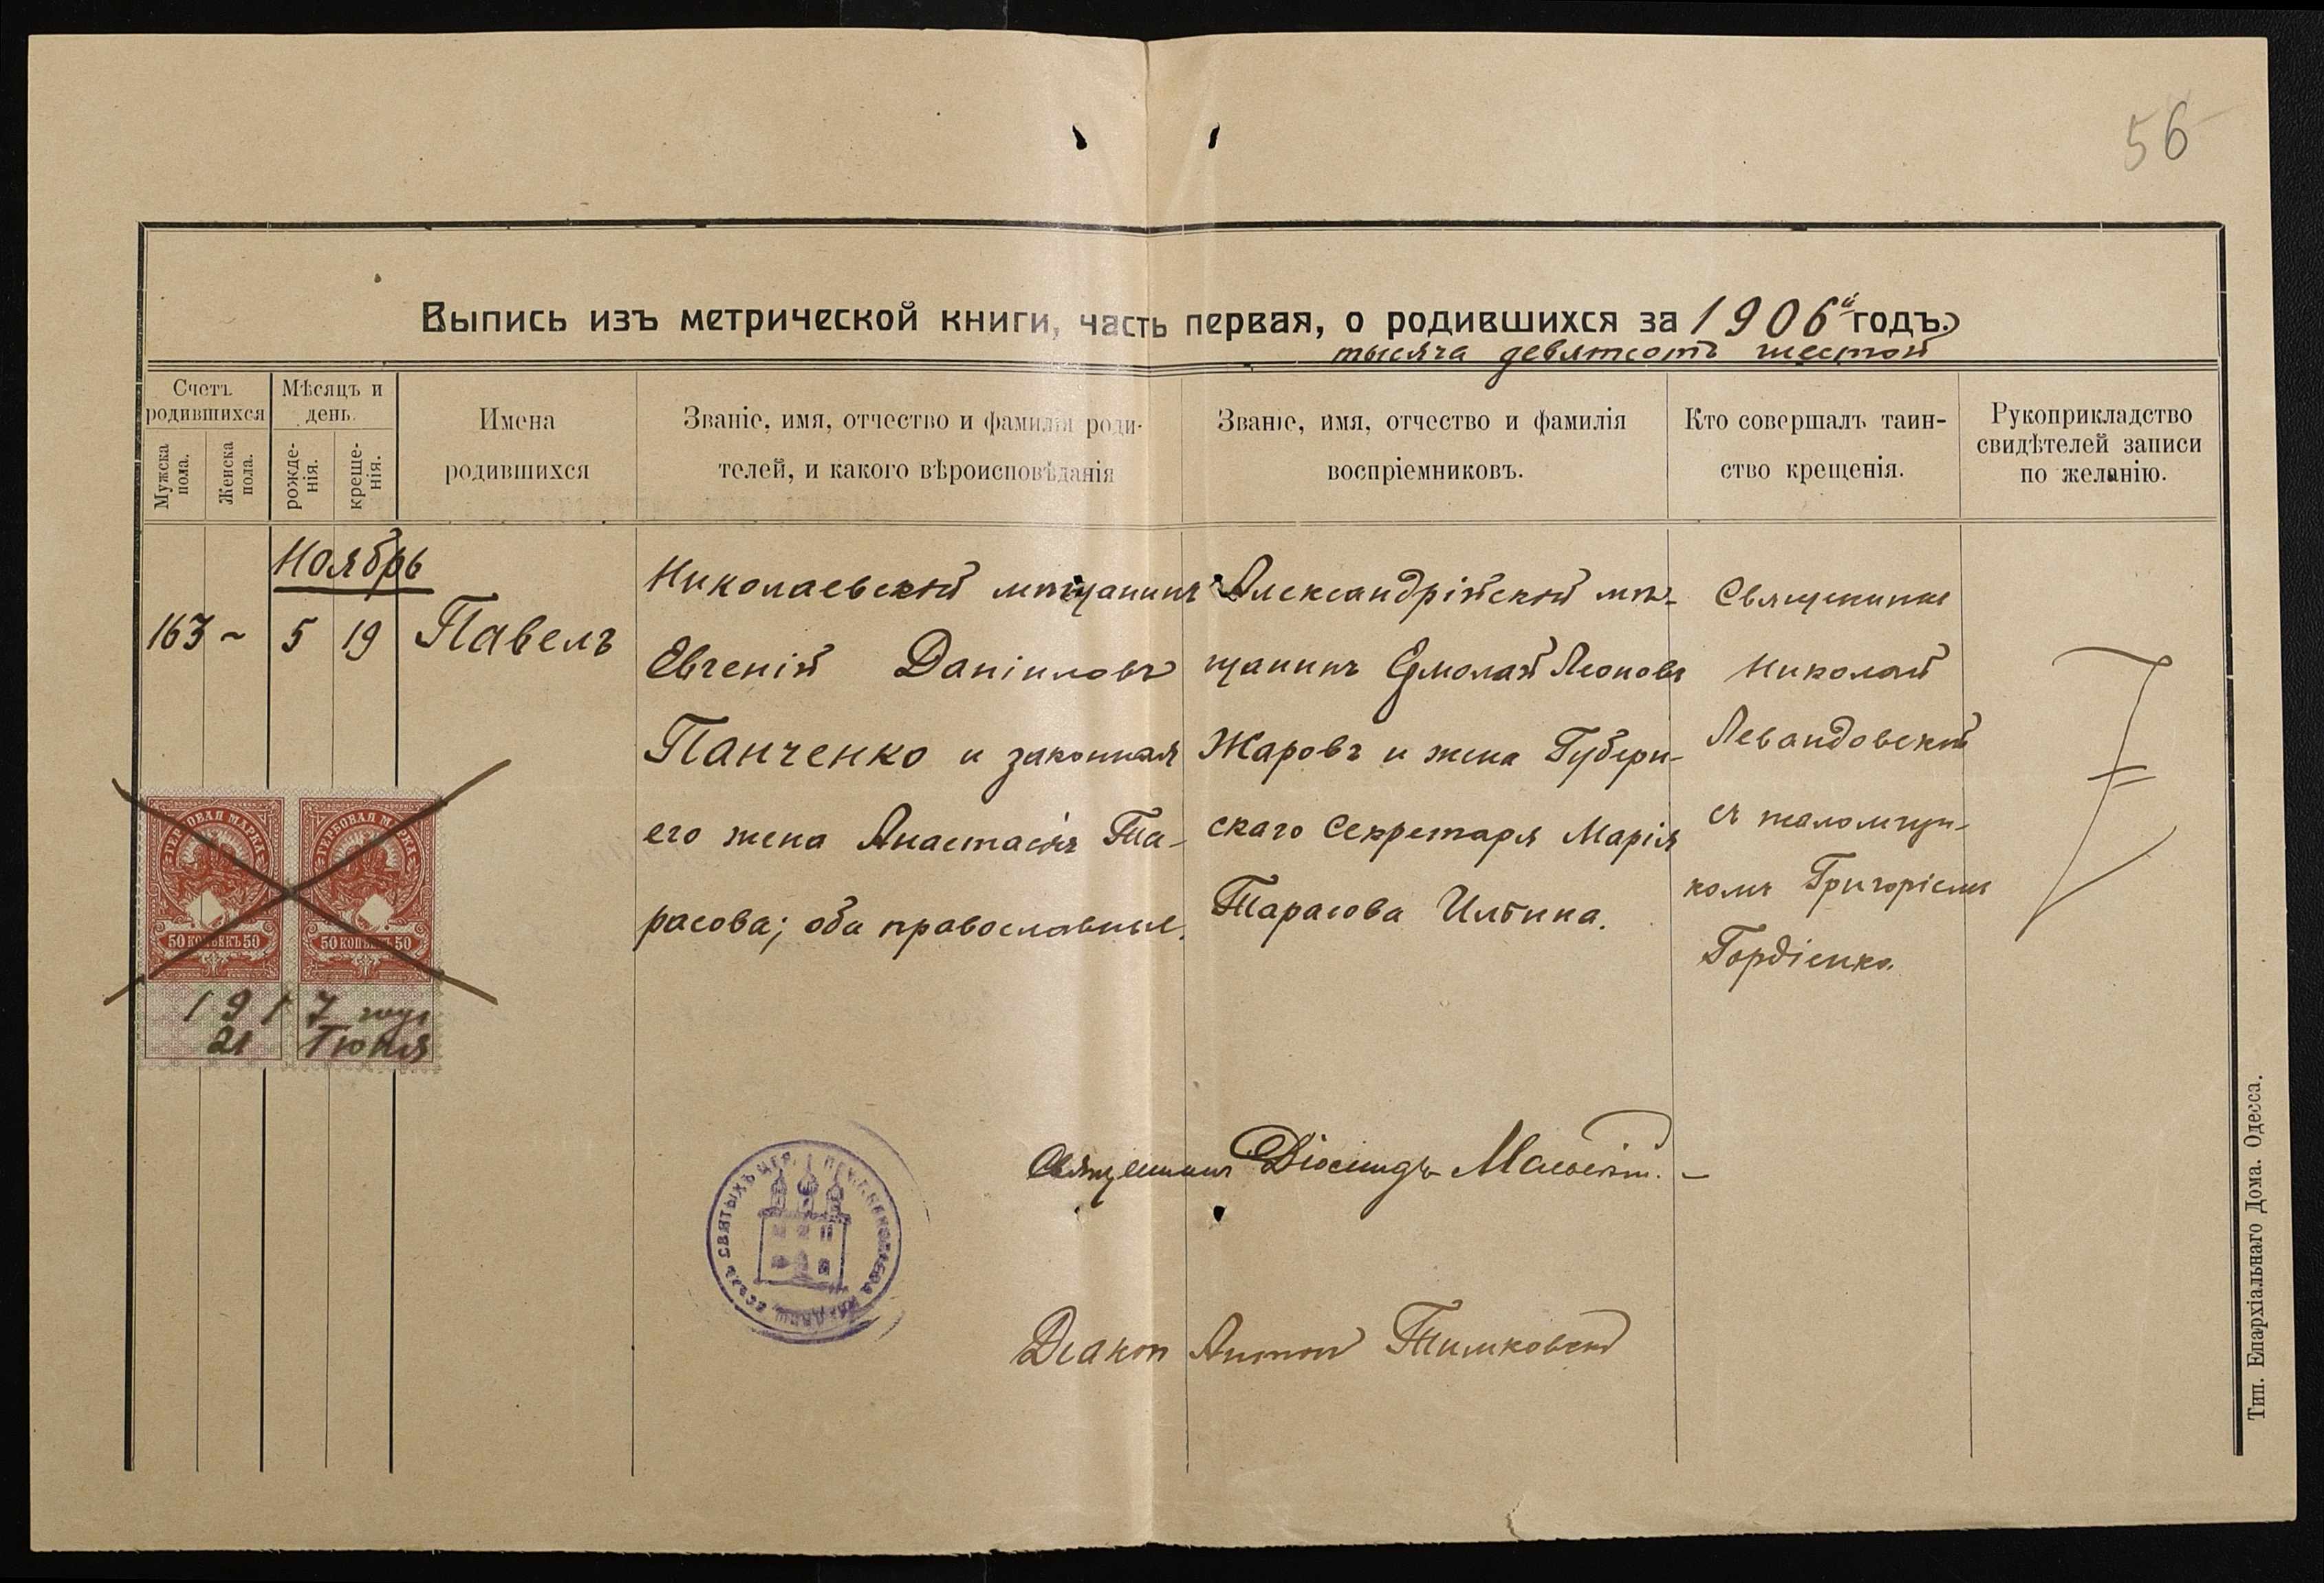 56
Выпись изъ метрической книги, часть первая, о родившихся за 1906й годъ.
тысяча девятсотъ шестой
Счетъ родившихся
Мѣсяцъ и день.
Мужска пола.
Женска пола.
рожде-нія.
креще-нія.
Имена
родившихся
Званіе, имя, отчество и фамилія роди-
телей, и какого вѣроисповѣданія
Званіе, имя, отчество и фамилія
воспріемниковъ.
Кто совершалъ таин-
ство крещенія.
Рукоприкладство
свидѣтелей записи
по желанію.
Ноябрь
163 ~ 5 19 Павелъ
Николаевскій мѣщанинъ
Евгеній Даніиловъ
Панченко и законная
его жена Анастасія Та-
расова; оба православные.
Александрійскій мѣ-
щанинъ Ермолай Леоновъ
Жаровъ и жена Губерн-
скаго Секретаря Марія
Тарасова Ильина.
Священникъ
Николай
Левандовскій
съ псаломщи-
комъ Григоріемъ
Гордіенко.
ГЕРБОВАЯ МАРКА
50 КОПѢЕКЪ 50
ГЕРБОВАЯ МАРКА
50 КОПѢЕКЪ 50
1917 года
21 Іюня
Священникъ
ВСѢХЪ СВЯТЫХЪ ЦЕР.
Діаконъ Антоній Тимковскій
Тип. Епархіальнаго Дома. Одесса.